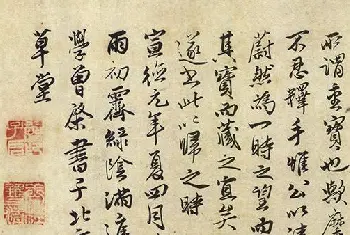 所謂重寶也歟摩
不忍釋手惟公以清
蔚然為一時之望而
其寶而藏之宜矣
遂書此以歸之時
宣德元年夏四月
雨初霽綠陰滿庭
學曾棨書于北京
草堂